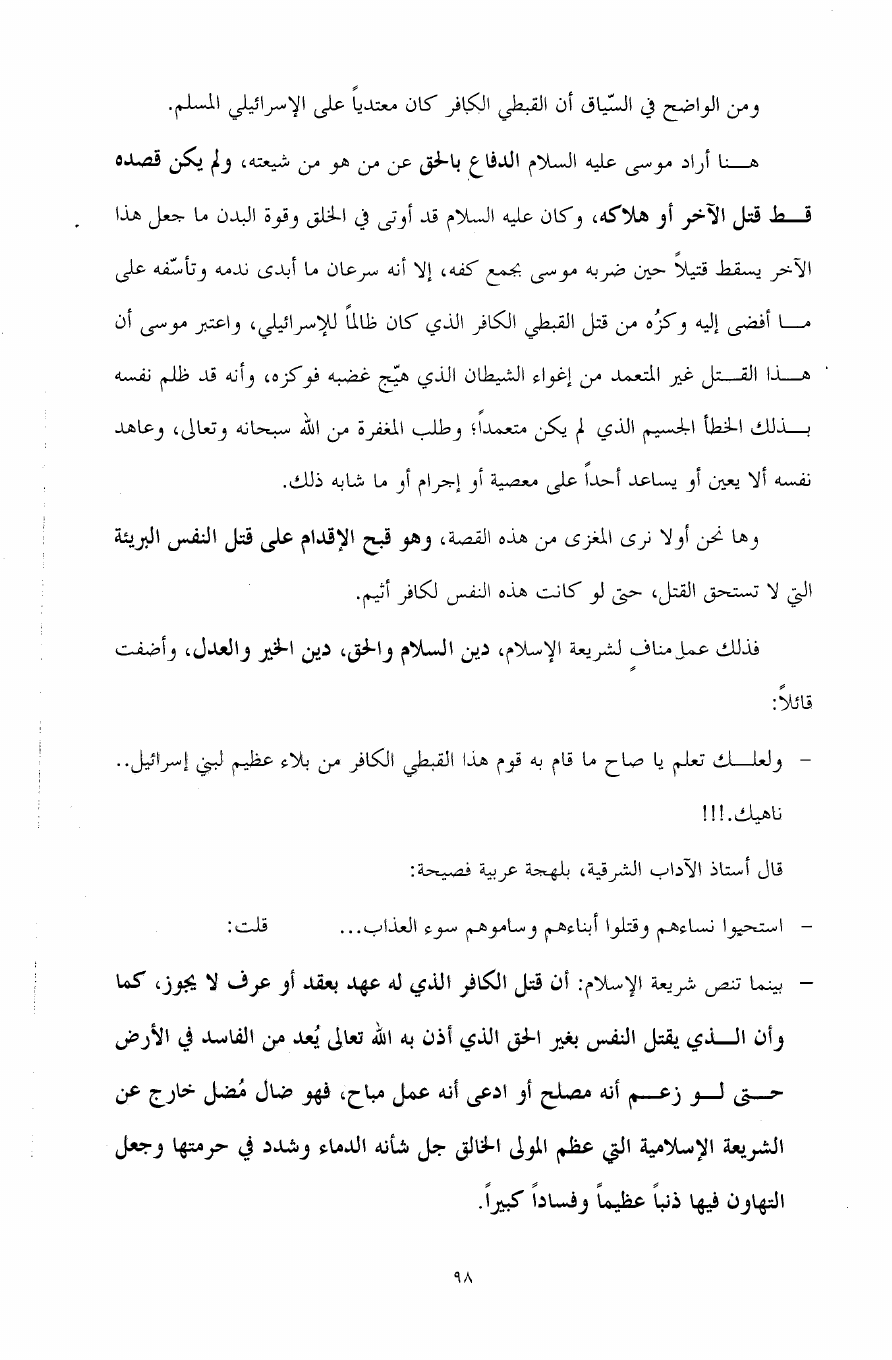 ومن الواضح في السّياق أن القبطي الكافر كان معتدياً على الإسرائيلي المسلم.
هنا أراد موسى عليه السلام الدفاع بالحق عن من هو من شيعته، ولم يكن قصده
قط قتل الآخر أو هلاكه، وكان عليه السلام قد أوتي في الخلق وقوة البدن ما جعل هذا
الآخر يسقط قتيلاً حين ضربه موسى بجمع كفه، إلا أنه سرعان ما أبدى ندمه وتأسّفه على
ما أفضى إليه وكزُه من قتل القبطي الكافر الذي كان ظالماً للإسرائيلي، واعتبر موسى أن
هذا القتل غير المتعمد من إغواء الشيطان الذي هيّج غضبه فوكزه، وأنه قد ظلم نفسه
بذلك الخطأ الجسيم الذي لم يكن متعمداً؛ وطلب المغفرة من الله سبحانه وتعالى، وعاهد
نفسه ألا يعين أو يساعد أحداً على معصية أو إجرام أو ما شابه ذلك.
وها نحن أولا نرى المغزى من هذه القصة، وهو قبح الإقدام على قتل النفس البريئة
التي لا تستحق القتل، حتى لو كانت هذه النفس لكافر أثيم.
فذلك عمل منافٍ لشريعة الإسلام، دين السلام والحق، دين الخير والعدل، وأضفت
قائلاً:
– ولعلك تعلم يا صاح ما قام به قوم هذا القبطي الكافر من بلاء عظيم لبني إسرائيل..
ناهيك.!!!
قال أستاذ الآداب الشرقية، بلهجة عربية فصيحة:
– استحيوا نساءهم وقتلوا أبناءهم وساموهم سوء العذاب... قلت:
– بينما تنص شريعة الإسلام: أن قتل الكافر الذي له عهد بعقد أو عرف لا يجوز، كما
وأن الذي يقتل النفس بغير الحق الذي أذن به الله تعالى يُعد من الفاسد في الأرض
حتى لو زعم أنه مصلح أو ادعى أنه عمل مباح، فهو ضال مُضل خارج عن
الشريعة الإسلامية التي عظم المولى الخالق جل شأنه الدماء وشدد في حرمتها وجعل
التهاون فيها ذنباً عظيماً وفساداً كبيراً.
٩٨